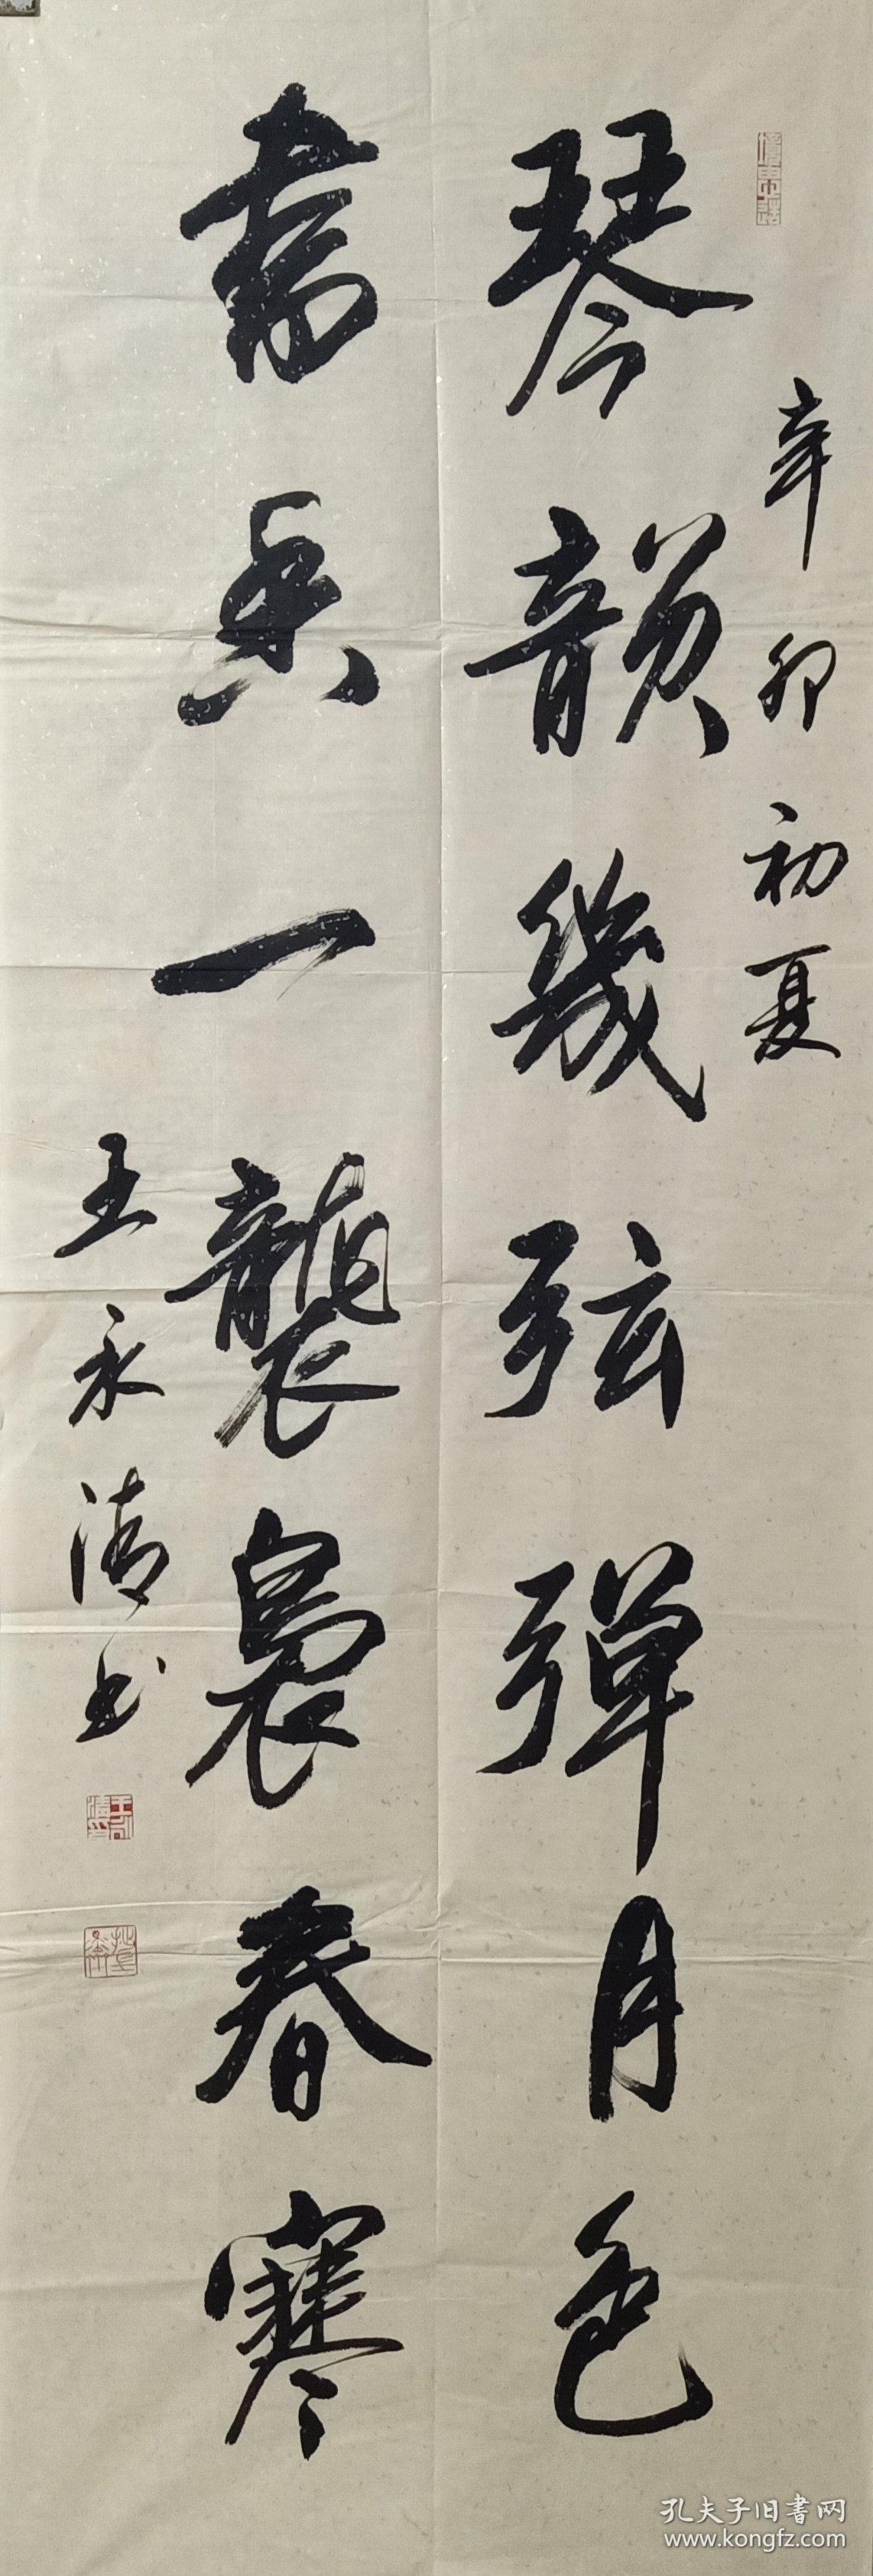 辛卯初夏
琴韻幾弦弹月色
书香一襲裊春寒
王永清书
孔夫子旧書网
www.kongfz.com